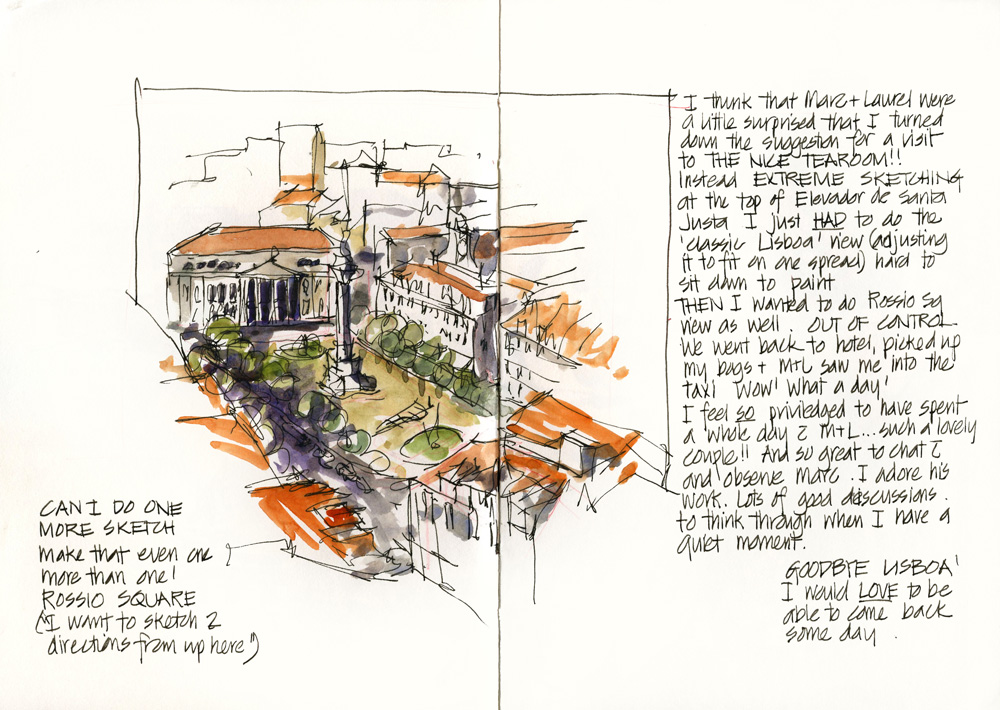 I think that Marc + Laurel were
a little surprised that I turned
down the suggestion for a visit
to THE NICE TEAROOM!!
Instead EXTREME SKETCHING
at the top of Elevador de Santa
Justa I just HAD to do the
'classic Lisboa' view (adjusting
it to fit on one spread) hard to
sit down to paint
THEN I wanted to do Rossio Sq
view as well. OUT OF CONTROL
We went back to hotel, picked up
my bags + M+L saw me into the
taxi Wow! What a day!
I feel so priviledged to have spent
a whole day c̄ M+L... such a lovely
couple!! And so great to chat c̄
and observe Marc. I adore his
work. Lots of good discussions.
to think through when I have a
quiet moment.
GOODBYE LISBOA!
I would LOVE to be
able to come back
some day.
CAN I DO ONE
MORE SKETCH
make that even one
more than one!
ROSSIO SQUARE
("I want to sketch 2
directions from up here")